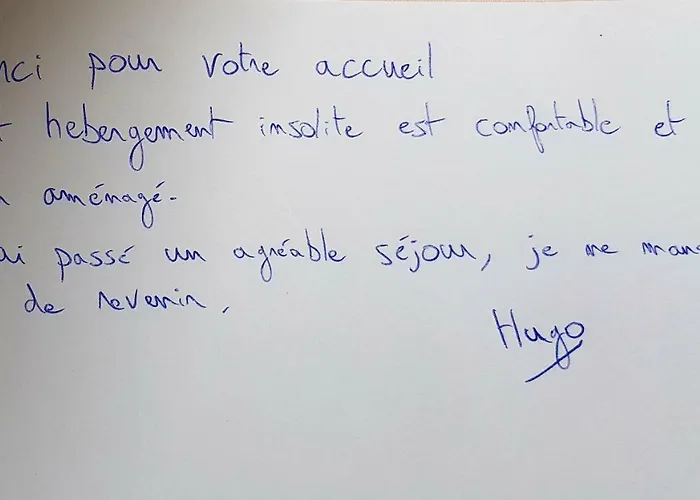 nci pour votre accueil
t hebergement insolite est confortable et
n aménagé.
ai passé un agréable séjour, je ne man
de revenir.
Hugo